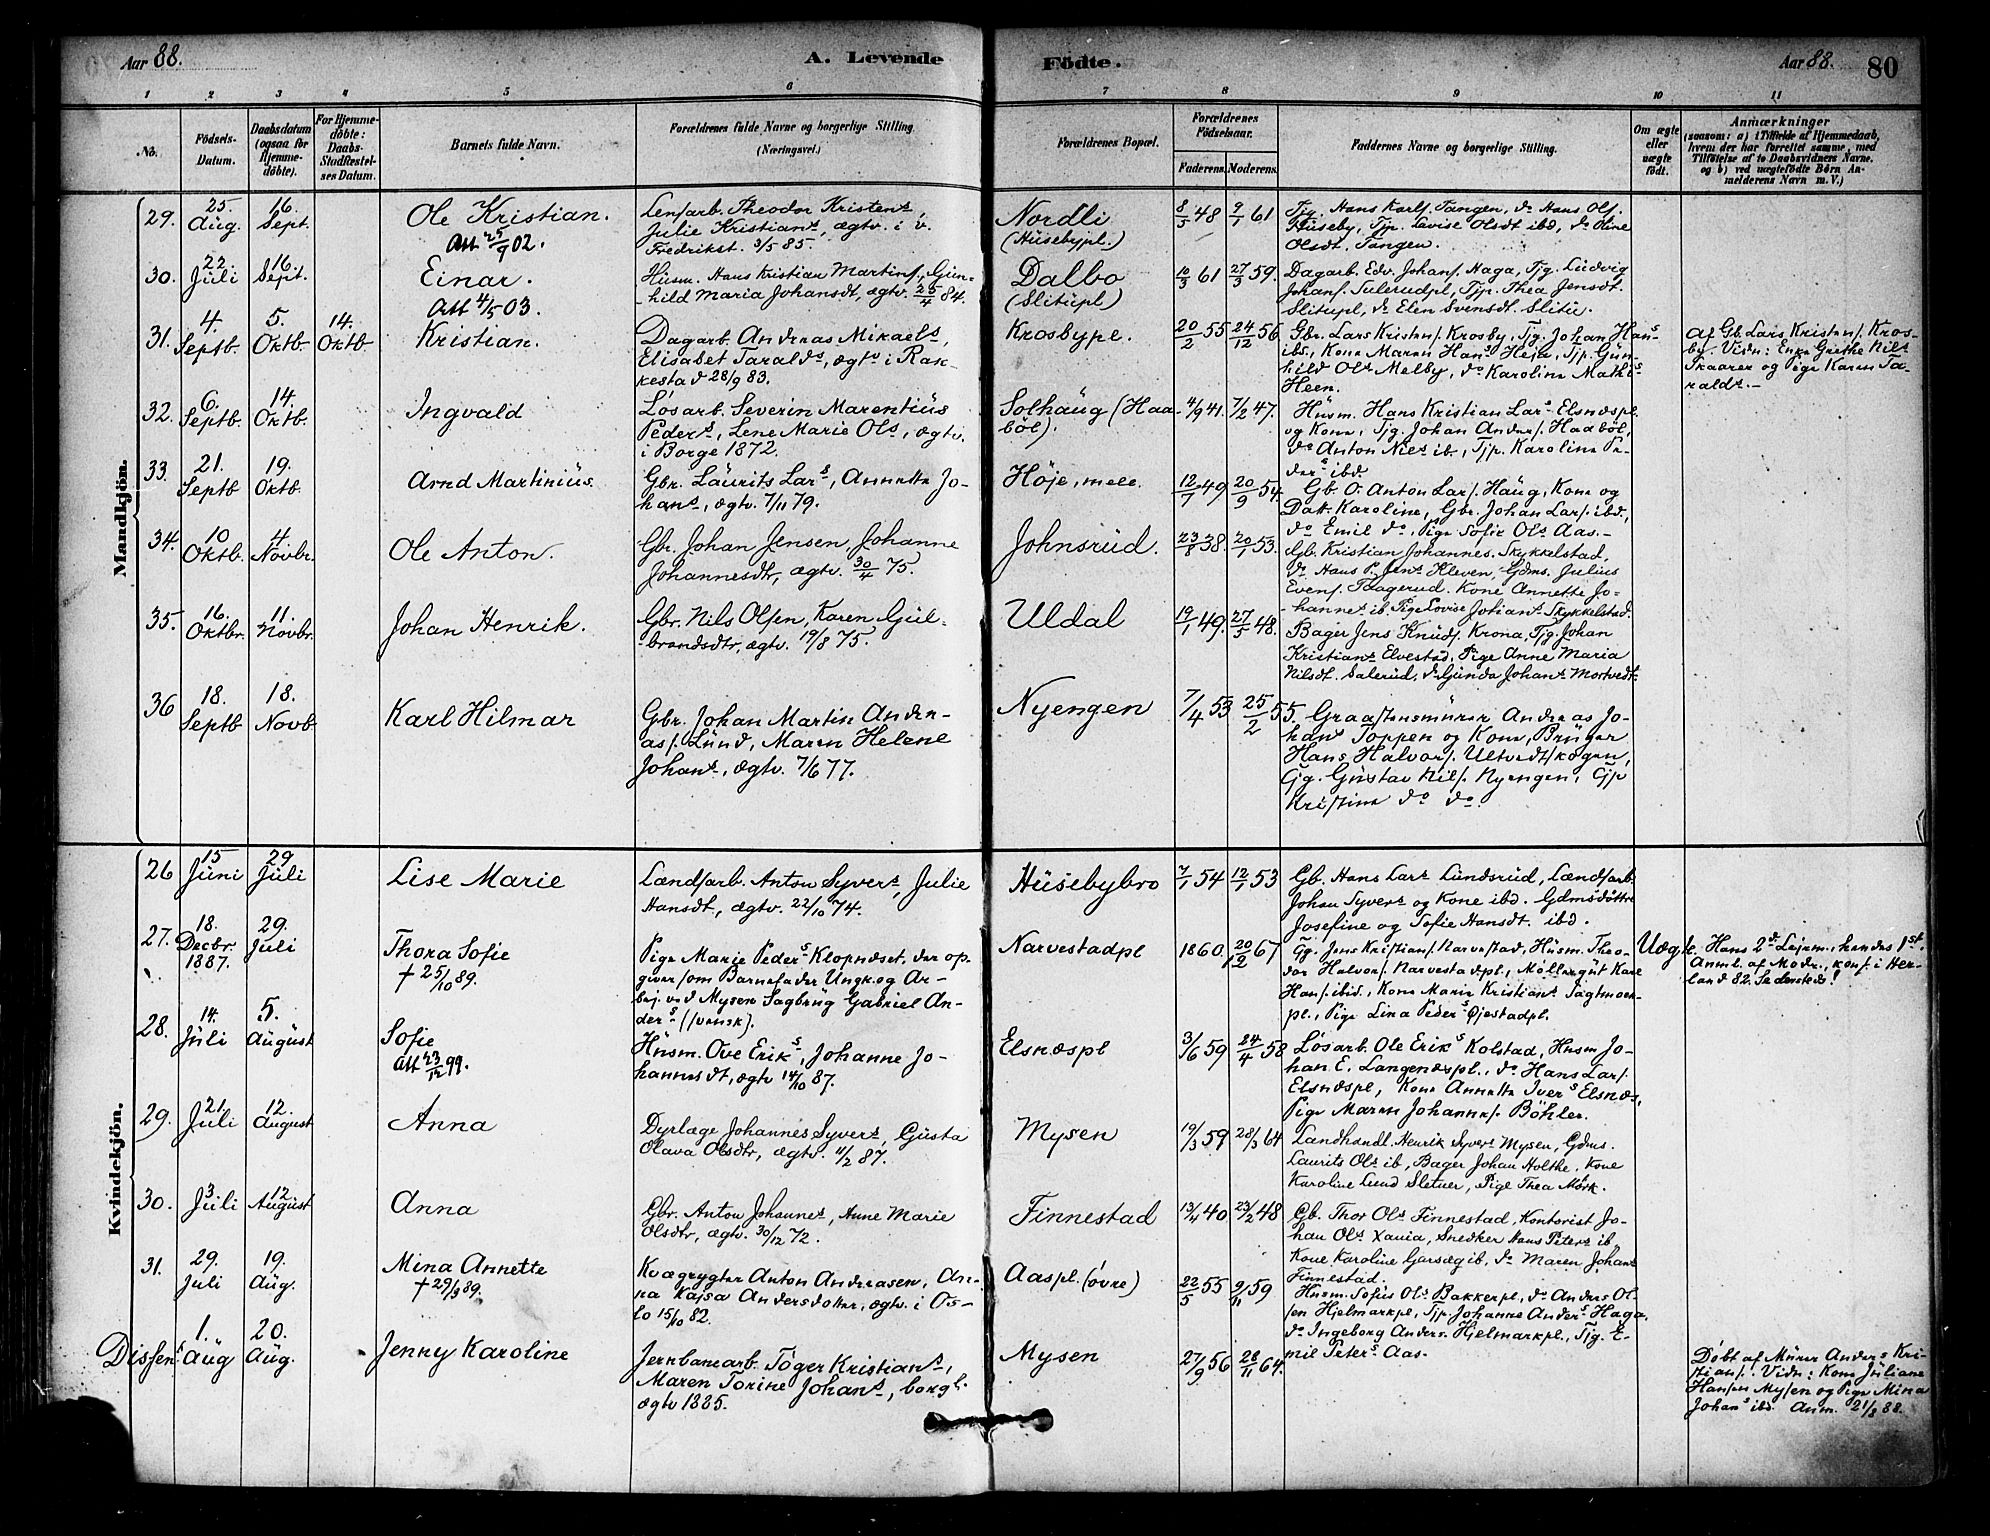 Aar 88.
A. Levende
Födte.
Aar 88.
80
1 2 3 4 5 6 7 8 9 10 11
No.
Födsels-
Datum.
Daabsdatum
(ogsaa for
Hjemme-
döbte).
For Hjemme-
döbte:
Daabs-
Stadfæstel-
ses Datum.
Barnets fulde Navn.
Forældrenes fulde Navne og borgerlige Stilling.
(Næringsvei.)
Forældrenes Bopæl.
Forældrenes
Födselsaar.
Faderens. Moderens.
Faddernes Navne og borgerlige Stilling.
Om ægte
eller
uægte
födt.
Anmærkninger
(saasom: a) i Tilfælde af Hjemmedaab,
hvem der har forrettet samme, med
Tilföielse af to Daabsvidners Navne.
og b) ved uægtefödte Börn An-
melderens Navn m. V.)
Mandkjön.
29.
25.
Aug.
16.
Sept.
Ole Kristian.
Att 25/9 02.
Theodor Kristens
Julie Kristians, ægtv. i v.
Fredrikst. 3/5 85.
Nordli
(Husebypl.)
8/5 48
9/1 61
Tjg. Hans Karls. Tangen, do Hans Ols.
Huseby, Tjp. Lovise Olsdt ibd, do Oline
Olsdt. Tangen.
30.
22.
Juli
16.
Sept.
Einar.
Att 4/5 03.
Husm. Hans Kristian Martins., Gun-
hild Maria Johansdt, ægtv. 25/4 84.
Dalbo
(Slitupl)
10/3 61
27/3 59.
Dagarb. Edv. Johans. Haga, Tjg. Ludvig
Johans. Sulerudpl, Tjp. Thea Jensdt.
Slitupl, do Elen Svensdt. Slitu.
31.
4.
Septb.
5.
Oktb.
14.
Oktb.
Kristian.
Dagarb. Andreas Mikaels,
Elisabet Taralds, ægtv i Rak-
kestad 28/9 83.
Krosbypl.
20/2 55
24/12 56
Gbr. Lars Kristens. Krosby, Tjg. Johan Hans
ibd., Kone Maren Hans Heja, Tjp. Gun-
hild Ols Melby, do Karoline Mathis
Heen.
af Gb. Lars Kristens. Kros-
by. Vidn: Enke Grethe Nils
Skaarer og Pige Karen Ta-
ralds.
32.
6.
Septb.
14.
Oktb.
Ingvald
Løsarb. Severin Marentius
Peders, Lene Marie Ols, ægtv.
i Borge 1872.
Solhaug (Haa-
böl).
4/9 41.
7/2 47.
Husm. Hans Kristian Lars Elsnæspl.
og Kone, Tjg. Johan Anders. Haaböl,
do Anton Niels ib, Tjp. Karoline Pe-
ders ibd.
33.
21.
Septb
19.
Oktb.
Arnd Martinius.
Gbr. Laurits Lars, Annette Jo-
hans, ægtv. 7/11 79.
Höje, mell.
12/7 49
20/9 54.
Gb. O. Anton Lars. Haug, Kone og
Datt. Karoline, Gbr. Johan Lars. ibd.,
do Emil do, Pige Sofie Ols Aas.
34.
10
Oktb.
4.
Novbr.
Ole Anton.
Gbr. Johan Jensen, Johanne
Johannesdtr, ægtv. 30/4 75.
Johnsrud.
23/8 38.
20/1 53.
Gb. Kristian Johannes. Skykkelstad,
do Hans P. Jens Kleven, Gdms. Julius
Evens. Baagerud. Kone Annette Jo-
hannes ib. Pige Lovise Johans Skykkelstad.
35.
16.
Oktbr.
11.
Novbr.
Johan Henrik.
Gbr. Nils Olsen, Karen Gul-
brandsdtr, ægtv. 19/8 75.
Uldal
19/1 49.
27/5 48.
Bager Jens Knuds. Krona, Tjg. Johan
Kristians Elvestad, Pige Anne Maria
Nilsdt. Salerud, do Gunda Johans Mortvedt
36
18.
Septb
18.
Novb
Karl Hilmar
Gbr. Johan Martin Andre-
as. Lund, Maren Helene
Johans, ægtv. 7/6 77.
Nyengen
7/4 53
25/2 55.
Graastensmurer Andreas Jo-
hans Toppen og Kone, Bruger
Hans Halvors. Ultvedtskogen,
Gg. Gustav Nils. Nyengen, Gjp
Kristine do do.
Kvindekjön.
26
15
Juni
29
Juli
Lise Marie
Landsarb. Anton Syvers, Julie
Hansdt, ægtv. 22/10 74.
Husebybro
7/1 54
12/1 53
Gb. Hans Lars Lundsrud, Landsarb.
Johan Syvers og Kone ibd. Gdmsdöttre
Josefine og Sofie Hansdt. ibd.
27.
18.
Decbr.
1887.
29.
Juli
Thora Sofie
† 25/10 89.
Pige Marie Peders Klopnæset, der op-
giver som Barnefader Ungk. og Ar-
bej. ved Mysen Sagbrug Gabriel An-
ders (svensk).
Narvestadpl
1860.
20/12 67
Gg. Jens Kristians. Narvestad, Husm. Theo-
dor Halvors. Narvestadpl, Møllergut Karl
Hans. ibid., Kone Maria Kristians Sagtmoen-
pl., Pige Lina Peders Øjestadpl.
Uægte.
Hans 2d Lejerm., hendes 1st.
Anml. af Modr., konf. i Her-
land 82. Se derstede!
28.
14.
Juli
5.
August
Sofie
Att 23/12 99.
Husm. Ove Eriks, Johanne Jo-
hannesdt, ægtv 14/10 87.
Elsnæspl
3/6 59
24/4 58
Løsarb. Ole Eriks Kolstad, Husm Jo-
han E. Langenæspl., do Hans Lars.
Elsnæspl, Kone Annette Ivers Elsnæs,
Pige Maren Johannes. Böhler.
29.
21.
Juli
12.
August
Anna
Dyrlæge Johannes Syvers, Gusta
Olava Olsdtr, ægtv. 11/2 87.
Mysen
19/3 59
28/3 64
Landhandl. Henrik Syvers Mysen, Gdms.
Laurits Ols ib, Bager Johan Holthe. Kone
Karoline Lund Sletner, Pige Thea Mörk.
30.
3
Juli
12
August
Anna
Gbr. Anton Johannes, Anne Marie
Olsdtr, ægtv. 30/12 72.
Finnestad
13/4 40
23/2 48
Gb. Thor Ols Finnestad, Kontorist Jo-
han Ols Xania, Snedker Hans Peters ib
Kone Karoline Garsæg ib, do Maren Johans
Finnestad.
31.
29.
Juli
19.
Aug.
Mina Annette
† 29/3 89.
Kvægrygter Anton Andreasen, An-
na Kajsa Andersdotter, ægtv. i Os-
lo 15/10 82.
Aaspl. (övre)
22/5 55
9/11 59
Husm. Sofus Ols Bakkerpl, do Anders Ol-
sen Hjelmarkpl, Tjp. Johanne Anders Haga,
do Ingeborg Anders. Hjelmarkpl., Tjg. E-
mil Peters Aas.
Dissent
1.
Aug
20.
Aug.
Jenny Karoline
Jernbanearb. Töger Kristians,
Maren Torine Johans, borgl.
ægtv 1885.
Mysen
27/9 56
28/11 64.
Döbt af Murer Anders Kri-
stians. Vidn: Kone Juliane
Hansen Mysen og Pige Mina
Johans ibd. Anm. 21/8 88.